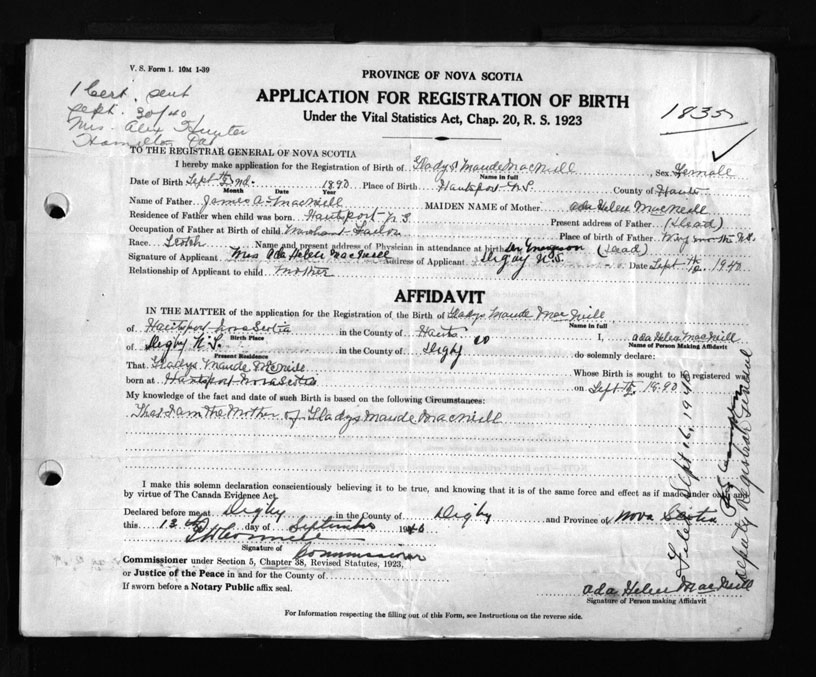 V. S. Form 1. 10M 1-39
PROVINCE OF NOVA SCOTIA
APPLICATION FOR REGISTRATION OF BIRTH
Under the Vital Statistics Act, Chap. 20, R. S. 1923
1835
1 Cert. sent
Sept. 30/40
Mrs. Alex Hunter
Hamilton
TO THE REGISTRAR GENERAL OF NOVA SCOTIA
I hereby make application for the Registration of Birth of Gladys Maude MacNeill Sex Female
Name in full
Date of Birth Sept 2nd. 1890 Place of Birth Hantsport N.S. County of Hants
Month Date Year
Name of Father James A. MacNeill MAIDEN NAME of Mother Ada Helen MacNeill
Residence of Father when child was born Hantsport N S Present address of Father (Dead)
Occupation of Father at Birth of child Merchant Tailor Place of birth of Father N.S.
Race Scotch Name and present address of Physician in attendance at birth Dr (Dead)
Signature of Applicant Mrs Ada Helen MacNeill Address of Applicant Digby N.S. Date Sept 12, 1940
Relationship of Applicant to child mother
AFFIDAVIT
IN THE MATTER of the application for the Registration of the Birth of Gladys Maude MacNeill
Name in full
of Hantsport Nova Scotia in the County of Hants I, Ada Helen MacNeill
Birth Place Name of Person Making Affidavit
of Digby N.S. in the County of Digby do solemnly declare:
Present Residence
That Gladys Maude McNeill Whose Birth is sought to be registered was
born at Hantsport Nova Scotia on Sept 1890
My knowledge of the fact and date of such Birth is based on the following Circumstances:
That I am the Mother of Gladys Maude MacNeill
I make this solemn declaration conscientiously believing it to be true, and knowing that it is of the same force and effect as if made under oath and
by virtue of The Canada Evidence Act.
Declared before me at Digby in the County of Digby and Province of Nova Scotia
this 12th day of September 1940
Signature of Commissioner
Commissioner under Section 5, Chapter 38, Revised Statutes, 1923,
or Justice of the Peace in and for the County of
If sworn before a Notary Public affix seal.
Ada Helen MacNeill
Signature of Person making Affidavit
For Information respecting the filling out of this Form, see Instructions on the reverse side.
Filed Sept 16, 1940
Deputy Registrar General